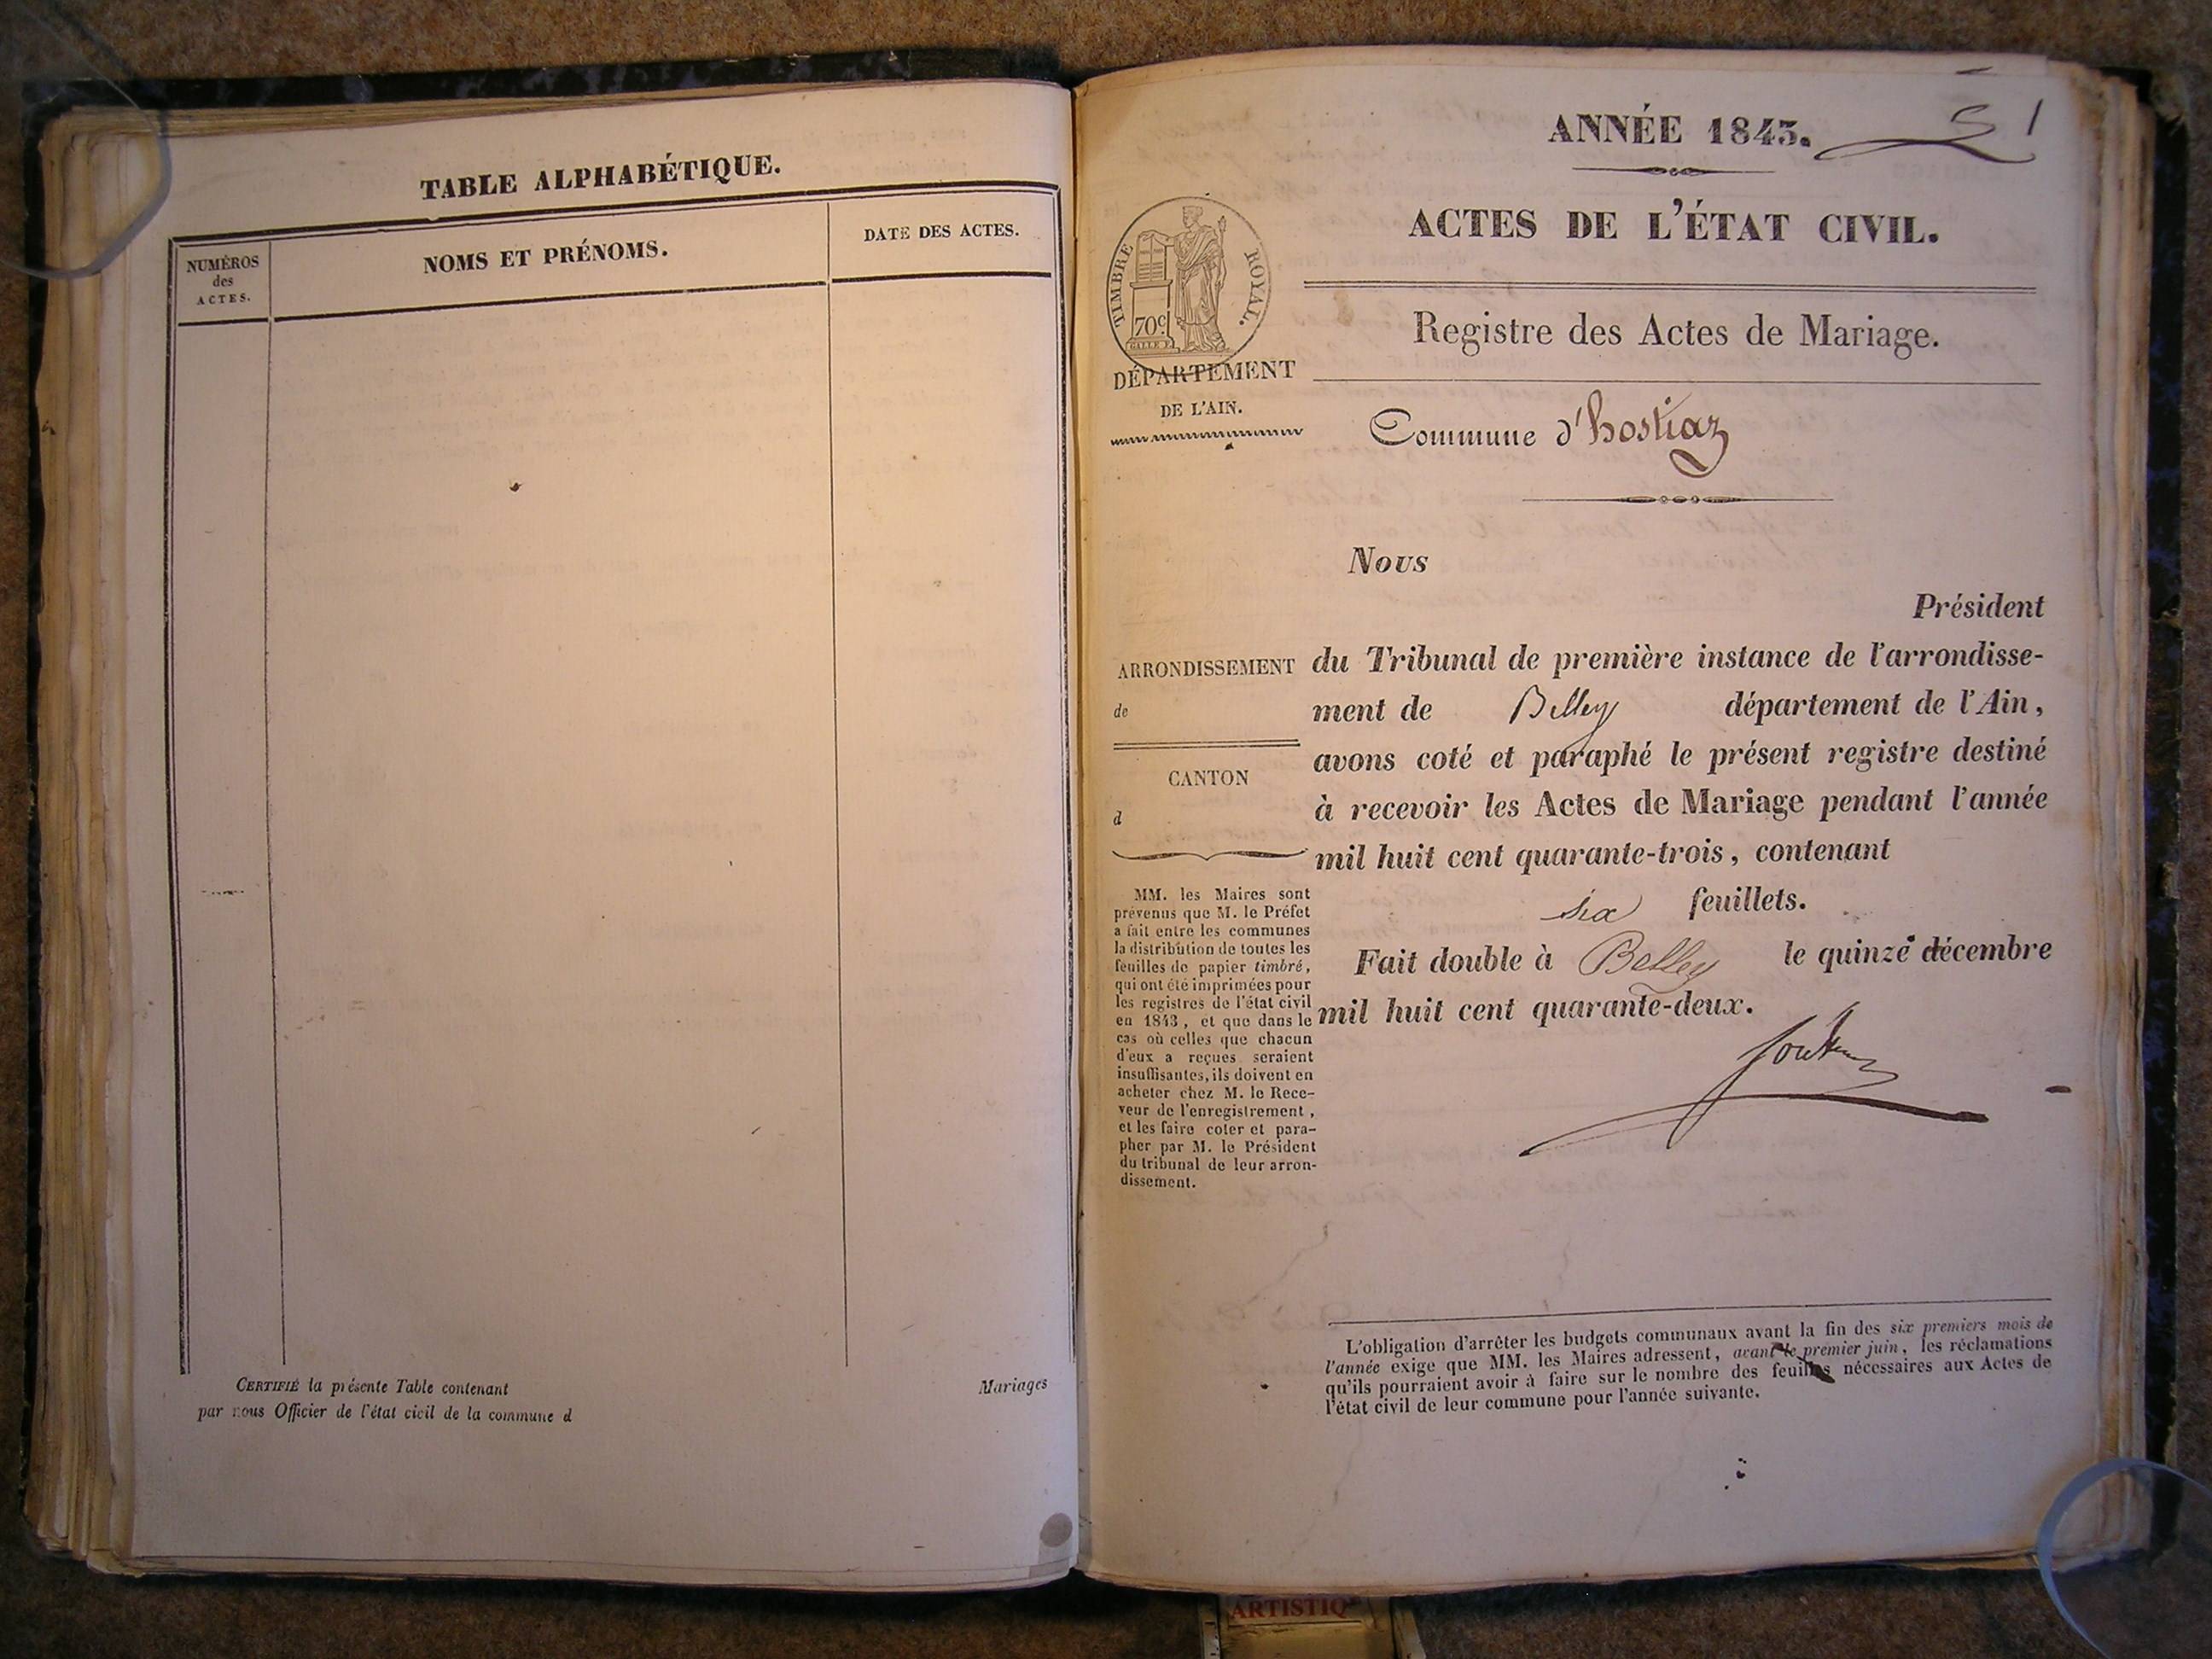 TABLE ALPHABÉTIQUE.
NUMÉROS
des
ACTES.
NOMS ET PRÉNOMS.
DATE DES ACTES.
CERTIFIÉ la présente Table contenant Mariages
par nous Officier de l'état civil de la commune d
ANNÉE 1843.
1
ACTES DE L'ÉTAT CIVIL.
TIMBRE ROYAL.
70c
Registre des Actes de Mariage.
DÉPARTEMENT
DE L'AIN.
Commune d'hostiaz
Nous
Président
ARRONDISSEMENT
de
CANTON
d
du Tribunal de première instance de l'arrondisse-
ment de Belley département de l'Ain,
avons coté et paraphé le présent registre destiné
à recevoir les Actes de Mariage pendant l'année
mil huit cent quarante-trois, contenant
six feuillets.
Fait double à Belley le quinze décembre
mil huit cent quarante-deux.
MM. les Maires sont
prévenus que M. le Préfet
a fait entre les communes
la distribution de toutes les
feuilles de papier timbré,
qui ont été imprimées pour
les registres de l'état civil
en 1843, et que dans le
cas où celles que chacun
d'eux a reçues seraient
insuffisantes, ils doivent en
acheter chez M. le Rece-
veur de l'enregistrement,
et les faire coter et para-
pher par M. le Président
du tribunal de leur arron-
dissement.
L'obligation d'arrêter les budgets communaux avant la fin des six premiers mois de
l'année exige que MM. les Maires adressent, avant le premier juin, les réclamations
qu'ils pourraient avoir à faire sur le nombre des feuilles nécessaires aux Actes de
l'état civil de leur commune pour l'année suivante.
ARTISTIQ